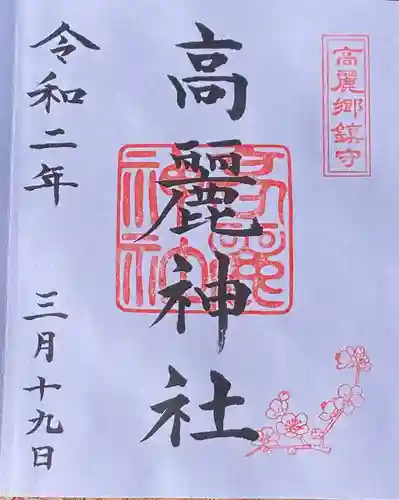 高麗郷鎮守
高麗神社
令和二年 三月十九日